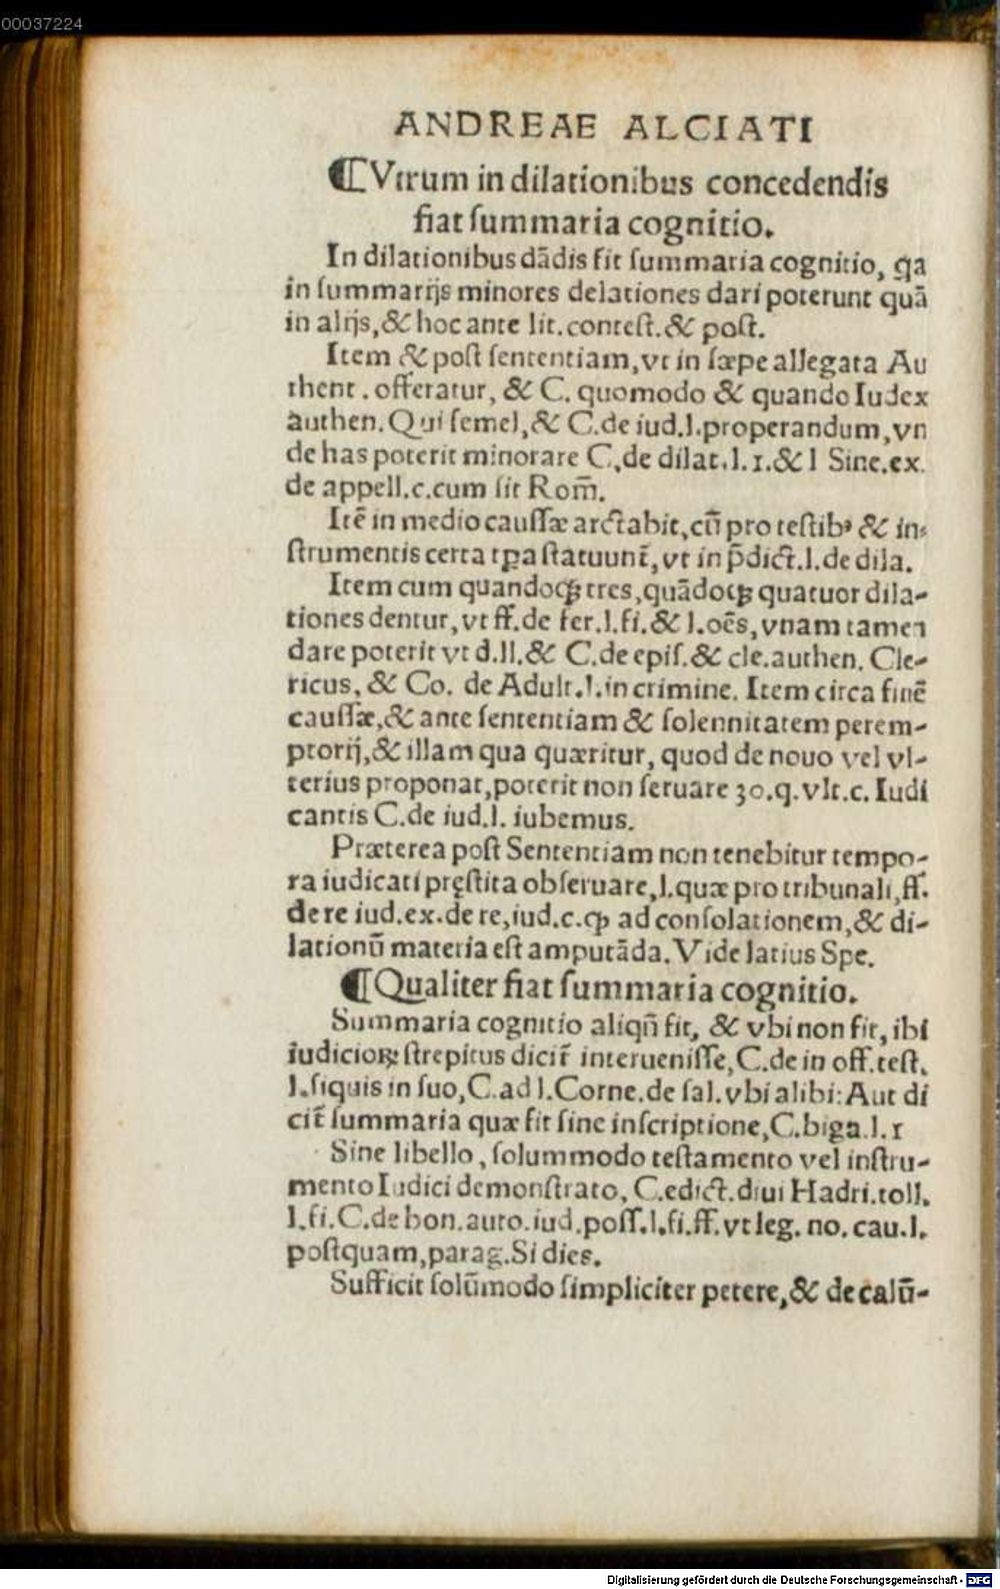 00037224
ANDREAE ALCIATI
¶Vtrum in dilationibus concedendis
fiat ſummaria cognitio.
In dilationibus dādis fit ſummaria cognitio, ꝗa
in ſummarijs minores delationes dari poterunt quā
in alijs, & hoc ante lit. conteſt. & poſt.
Item & poſt ſententiam, vt in ſæpe allegata Au
thent. offeratur, & C. quomodo & quando Iudex
authen. Qui ſemel, & C. de iud. l. properandum, vn
de has poterit minorare C. de dilat. l. 1. & l Sine. ex.
de appell. c. cum ſit Rom̄.
Itē in medio cauſſæ arctabit, cū pro teſtibꝰ & in-
ſtrumentis certa tꝑa ſtatuunt̄, vt in p̄dict. l. de dila.
Item cum quandoqꝫ tres, quādoqꝫ quatuor dila-
tiones dentur, vt ff. de fer. l. fi. & l. oēs, vnam tamen
dare poterit vt d. ll. & C. de epiſ. & cle. authen. Cle-
ricus, & Co. de Adult. l. in crimine. Item circa finē
cauſſæ, & ante ſententiam & ſolennitatem perem-
ptorij, & illam qua quæritur, quod de nouo vel vl-
terius proponat, poterit non ſeruare 30. q. vlt. c. Iudi
cantis C. de iud. l. iubemus.
Præterea poſt Sententiam non tenebitur tempo-
ra iudicati pręſtita obſeruare, l. quæ pro tribunali, ff.
de re iud. ex. de re, iud. c. ꝙ ad conſolationem, & di-
lationū materia eſt amputāda. Vide latius Spe.
¶Qualiter fiat ſummaria cognitio.
Summaria cognitio aliqn̄ fit, & vbi non fit, ibi
iudicioꝝ ſtrepitus dicit̄ interueniſſe, C. de in off. teſt.
l. ſiquis in ſuo, C. ad l. Corne. de fal. vbi alibi: Aut di
cit̄ ſummaria quæ fit ſine inſcriptione, C. biga. l. 1
Sine libello, ſolummodo teſtamento vel inſtru-
mento Iudici demonſtrato, C. edict. diui Hadri. toll.
l. fi. C. de bon. auto. iud. poſſ. l. fi. ff. vt leg. no. cau. l.
poſtquam, parag. Si dies.
Sufficit ſolūmodo ſimpliciter petere, & de calū-
Digitalisierung gefördert durch die Deutsche Forschungsgemeinschaft - DFG